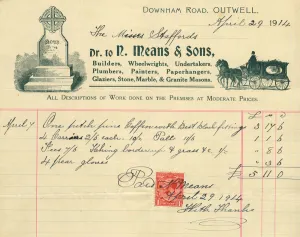 DOWNHAM ROAD, OUTWELL.
April 29 1914
The Misses Staffords
Dr. to N. Means & Sons,
Builders, Wheelwrights, Undertakers.
Plumbers, Painters, Paperhangers,
Glaziers, Stone, Marble, & Granite Masons.
ALL DESCRIPTIONS OF WORK DONE ON THE PREMISES AT MODERATE PRICES.
April 7 One pitch pine Coffin with Best Black 3 17 6
4 2/6 each 10/- Pall 1/-
7/6 Taking up & grass &c 1/-
4 pear gloves
£ 5 11 0
Paid N Means
April 29 1914
With Thanks